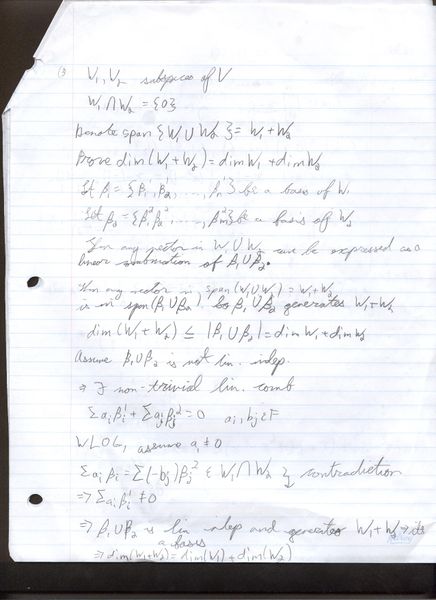 ③ V₁, V₂ subspaces of V
W₁ ∩ W₂ = {0}
Denote span {W₁ ∪ W₂} = W₁ + W₂
Prove dim(W₁ + W₂) = dim W₁ + dim W₂
Let β₁ = {β₁¹, β₂¹, ..., βₙ¹} be a basis of W₁
Let β₂ = {β₁² β₂², ..., βₘ²} be a basis of W₂
Then any vector in W₁ ∪ W₂ can be expressed as a
linear combination of β₁ ∪ β₂.
Then any vector in span(W₁ ∪ W₂) = W₁ + W₂
is in span(β₁ ∪ β₂) So β₁ ∪ β₂ generates W₁ + W₂
dim(W₁ + W₂) ≤ |β₁ ∪ β₂| = dim W₁ + dim W₂
Assume β₁ ∪ β₂ is not lin. indep.
⇒ ∃ non-trivial lin. comb
Σ aᵢ βᵢ¹ + Σ aⱼ βⱼ² = 0 aᵢ, bⱼ ∈ F
WLOG, assume a₁ ≠ 0
Σ aᵢ βᵢ = Σ(-bⱼ) βⱼ² ∈ W₁ ∩ W₂ contradiction
⇒ Σ aᵢ βᵢ¹ ≠ 0
⇒ β₁ ∪ β₂ is lin indep and generates W₁ + W₂ ⇒ its
a basis
⇒ dim(W₁+W₂) = dim(W₁) + dim(W₂)